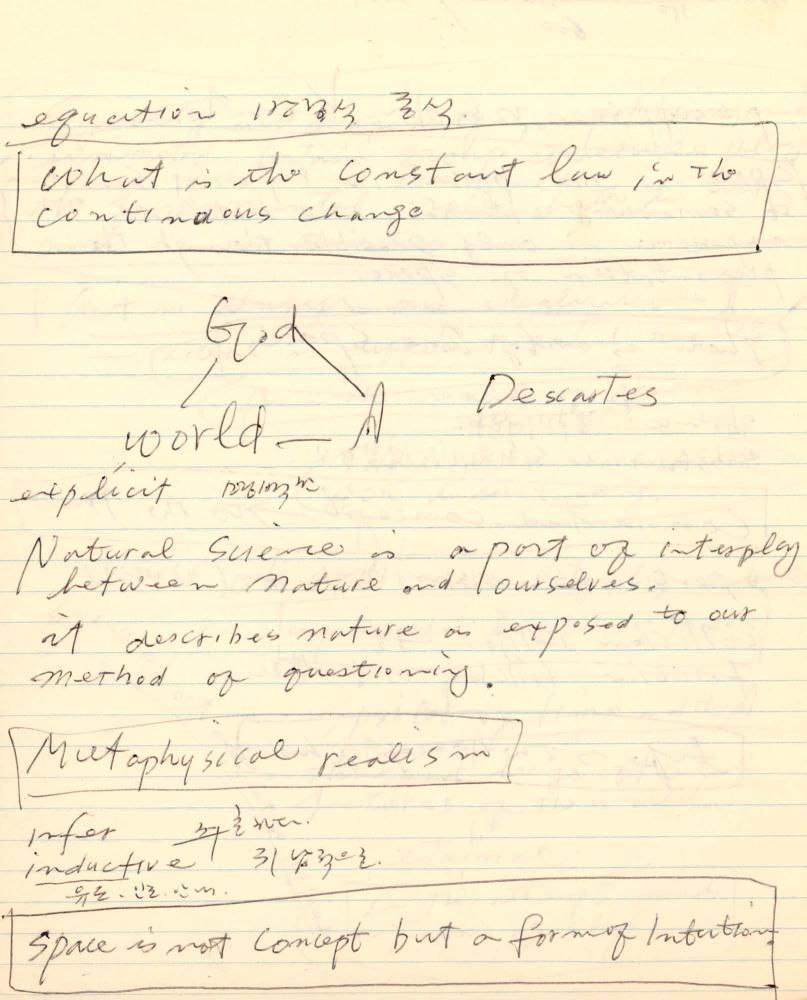 equation 방정식 공식.
What is the constant law in the
continuous change
God
world — A Descartes
explicit
Natural Science is a part of interplay
between nature and ourselves.
it describes nature as exposed to our
method of questioning.
Metaphysical realism
infer 추론하다.
inductive 귀납적으로.
유도. 인도. 안내.
Space is not concept but a form of Intuition.